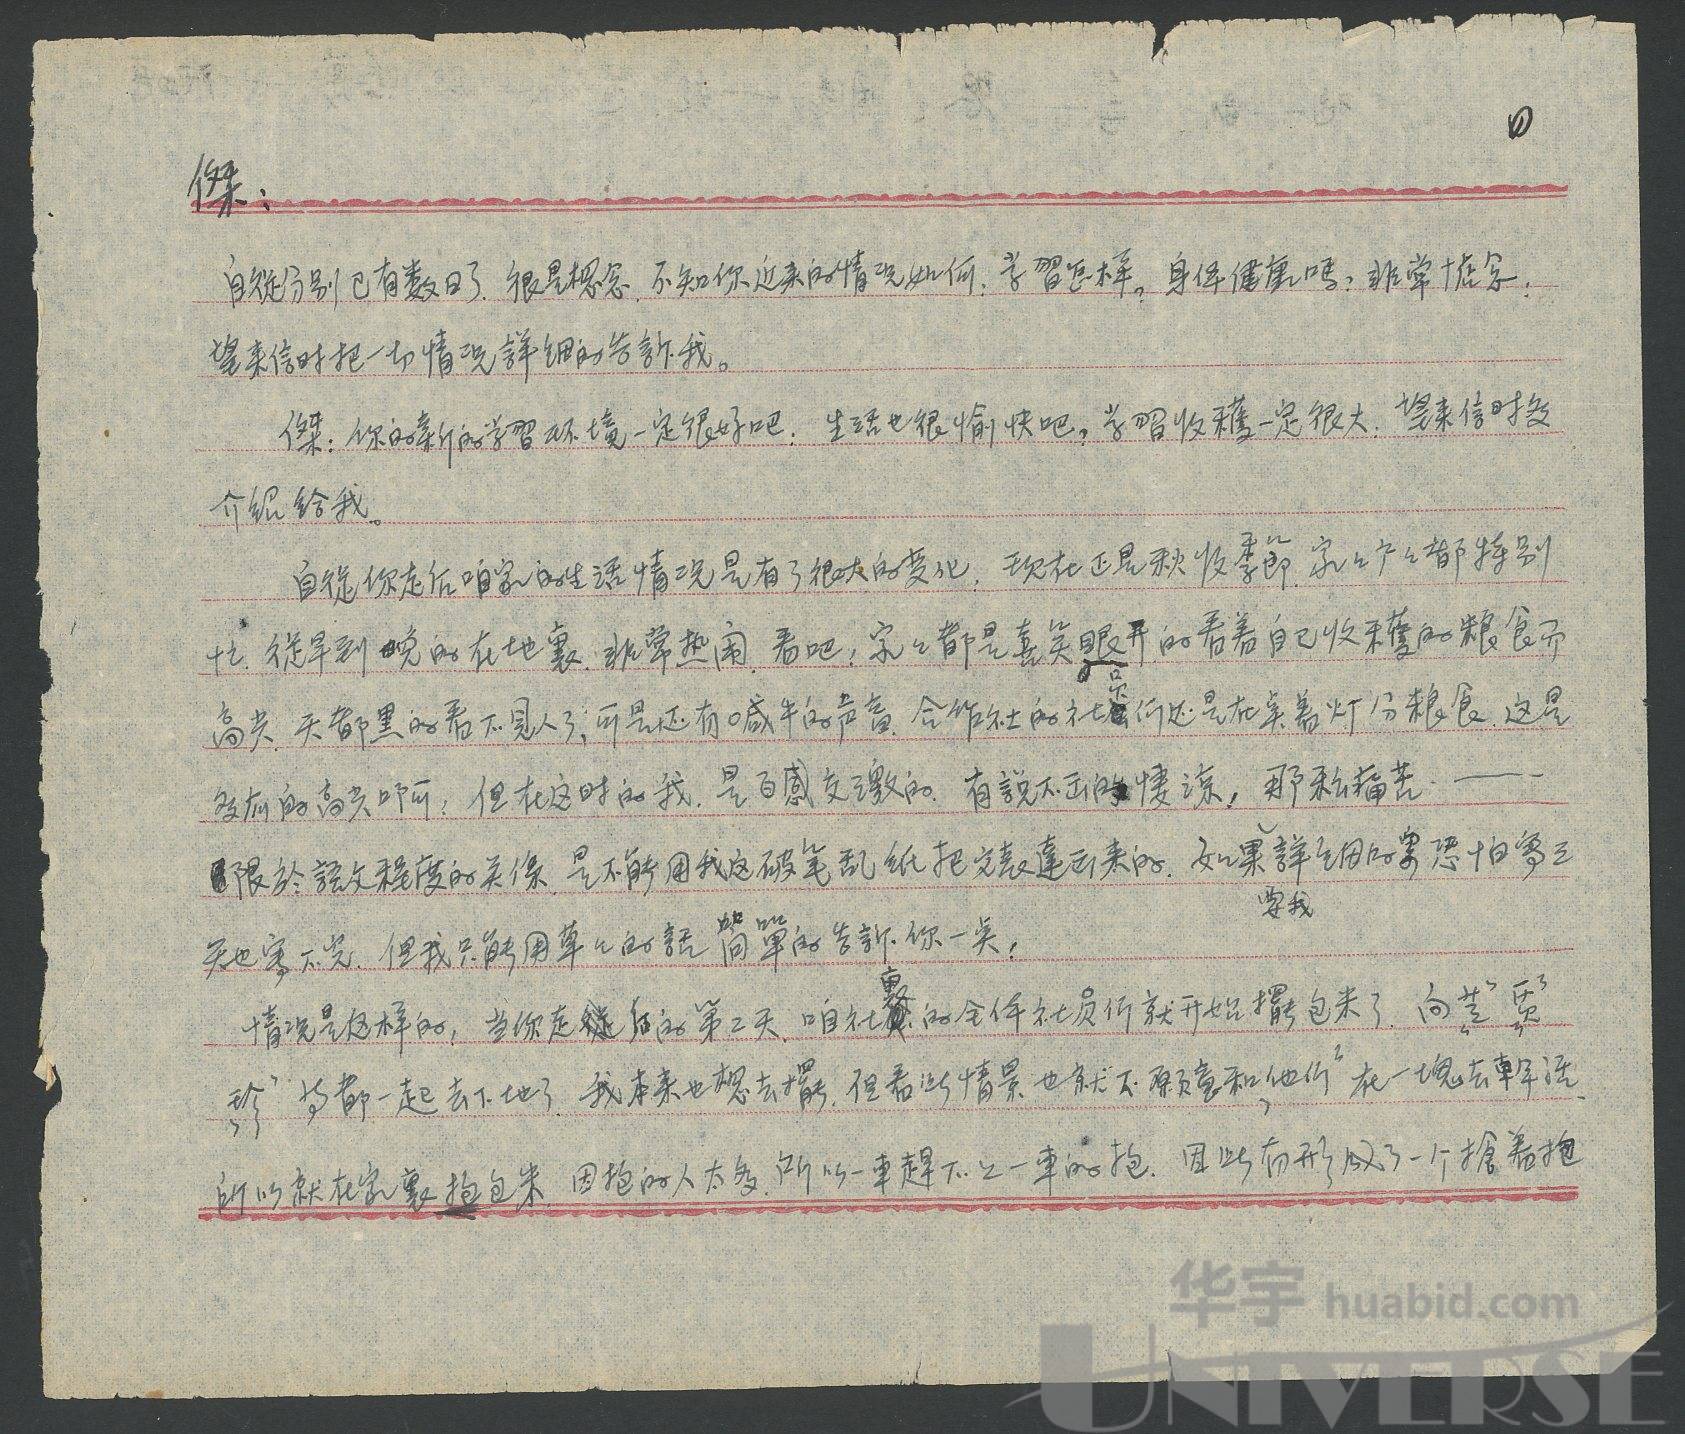 ①
傑：
自從分别已有数日了．很是想念．不知你近来的情况如何．学習怎样？身体健康吗？非常惦念．
望来信时把一切情况詳細的告訴我。
傑：你的新的学習环境一定很好吧．生活也很愉快吧？学習收穫一定很大．望来信时多
介紹给我。
自從你走后咱家的生活情况是有了很大的变化．现在正是秋收季節．家々户々都特别
忙．從早到晚的在地裏．非常热闹．看吧！家々都是喜笑眼开的看着自己收穫的粮食而
高兴．天都黑的看不見人了，可是还有喊牛的声音．合作社的社員们还是在点着灯分粮食．这是
多么的高兴呵！但在这时的我．是百感交激的．有說不出的悽涼，那种痛苦．——
限於語文程度的关係．是不能用我这破笔乱纸把它表達出来的．如果要我詳細的写恐怕写三
天也写不完．但我只能用草々的話简單的告訴你一点．
情况是这样的，当你走后的第二天．咱社裏的全体社员们就开始擺包米了．向芝，賈
珍，等都一起去下地了．我本来也想去擺．但看此情景也就不願意和他们在一塊去幹活．
所以就在家裏抱包米．因抱的人太多．所以一車趕不上一車的抱．因此而形成了一个搶着抱
华宇 huabid.com
UNIVERSE